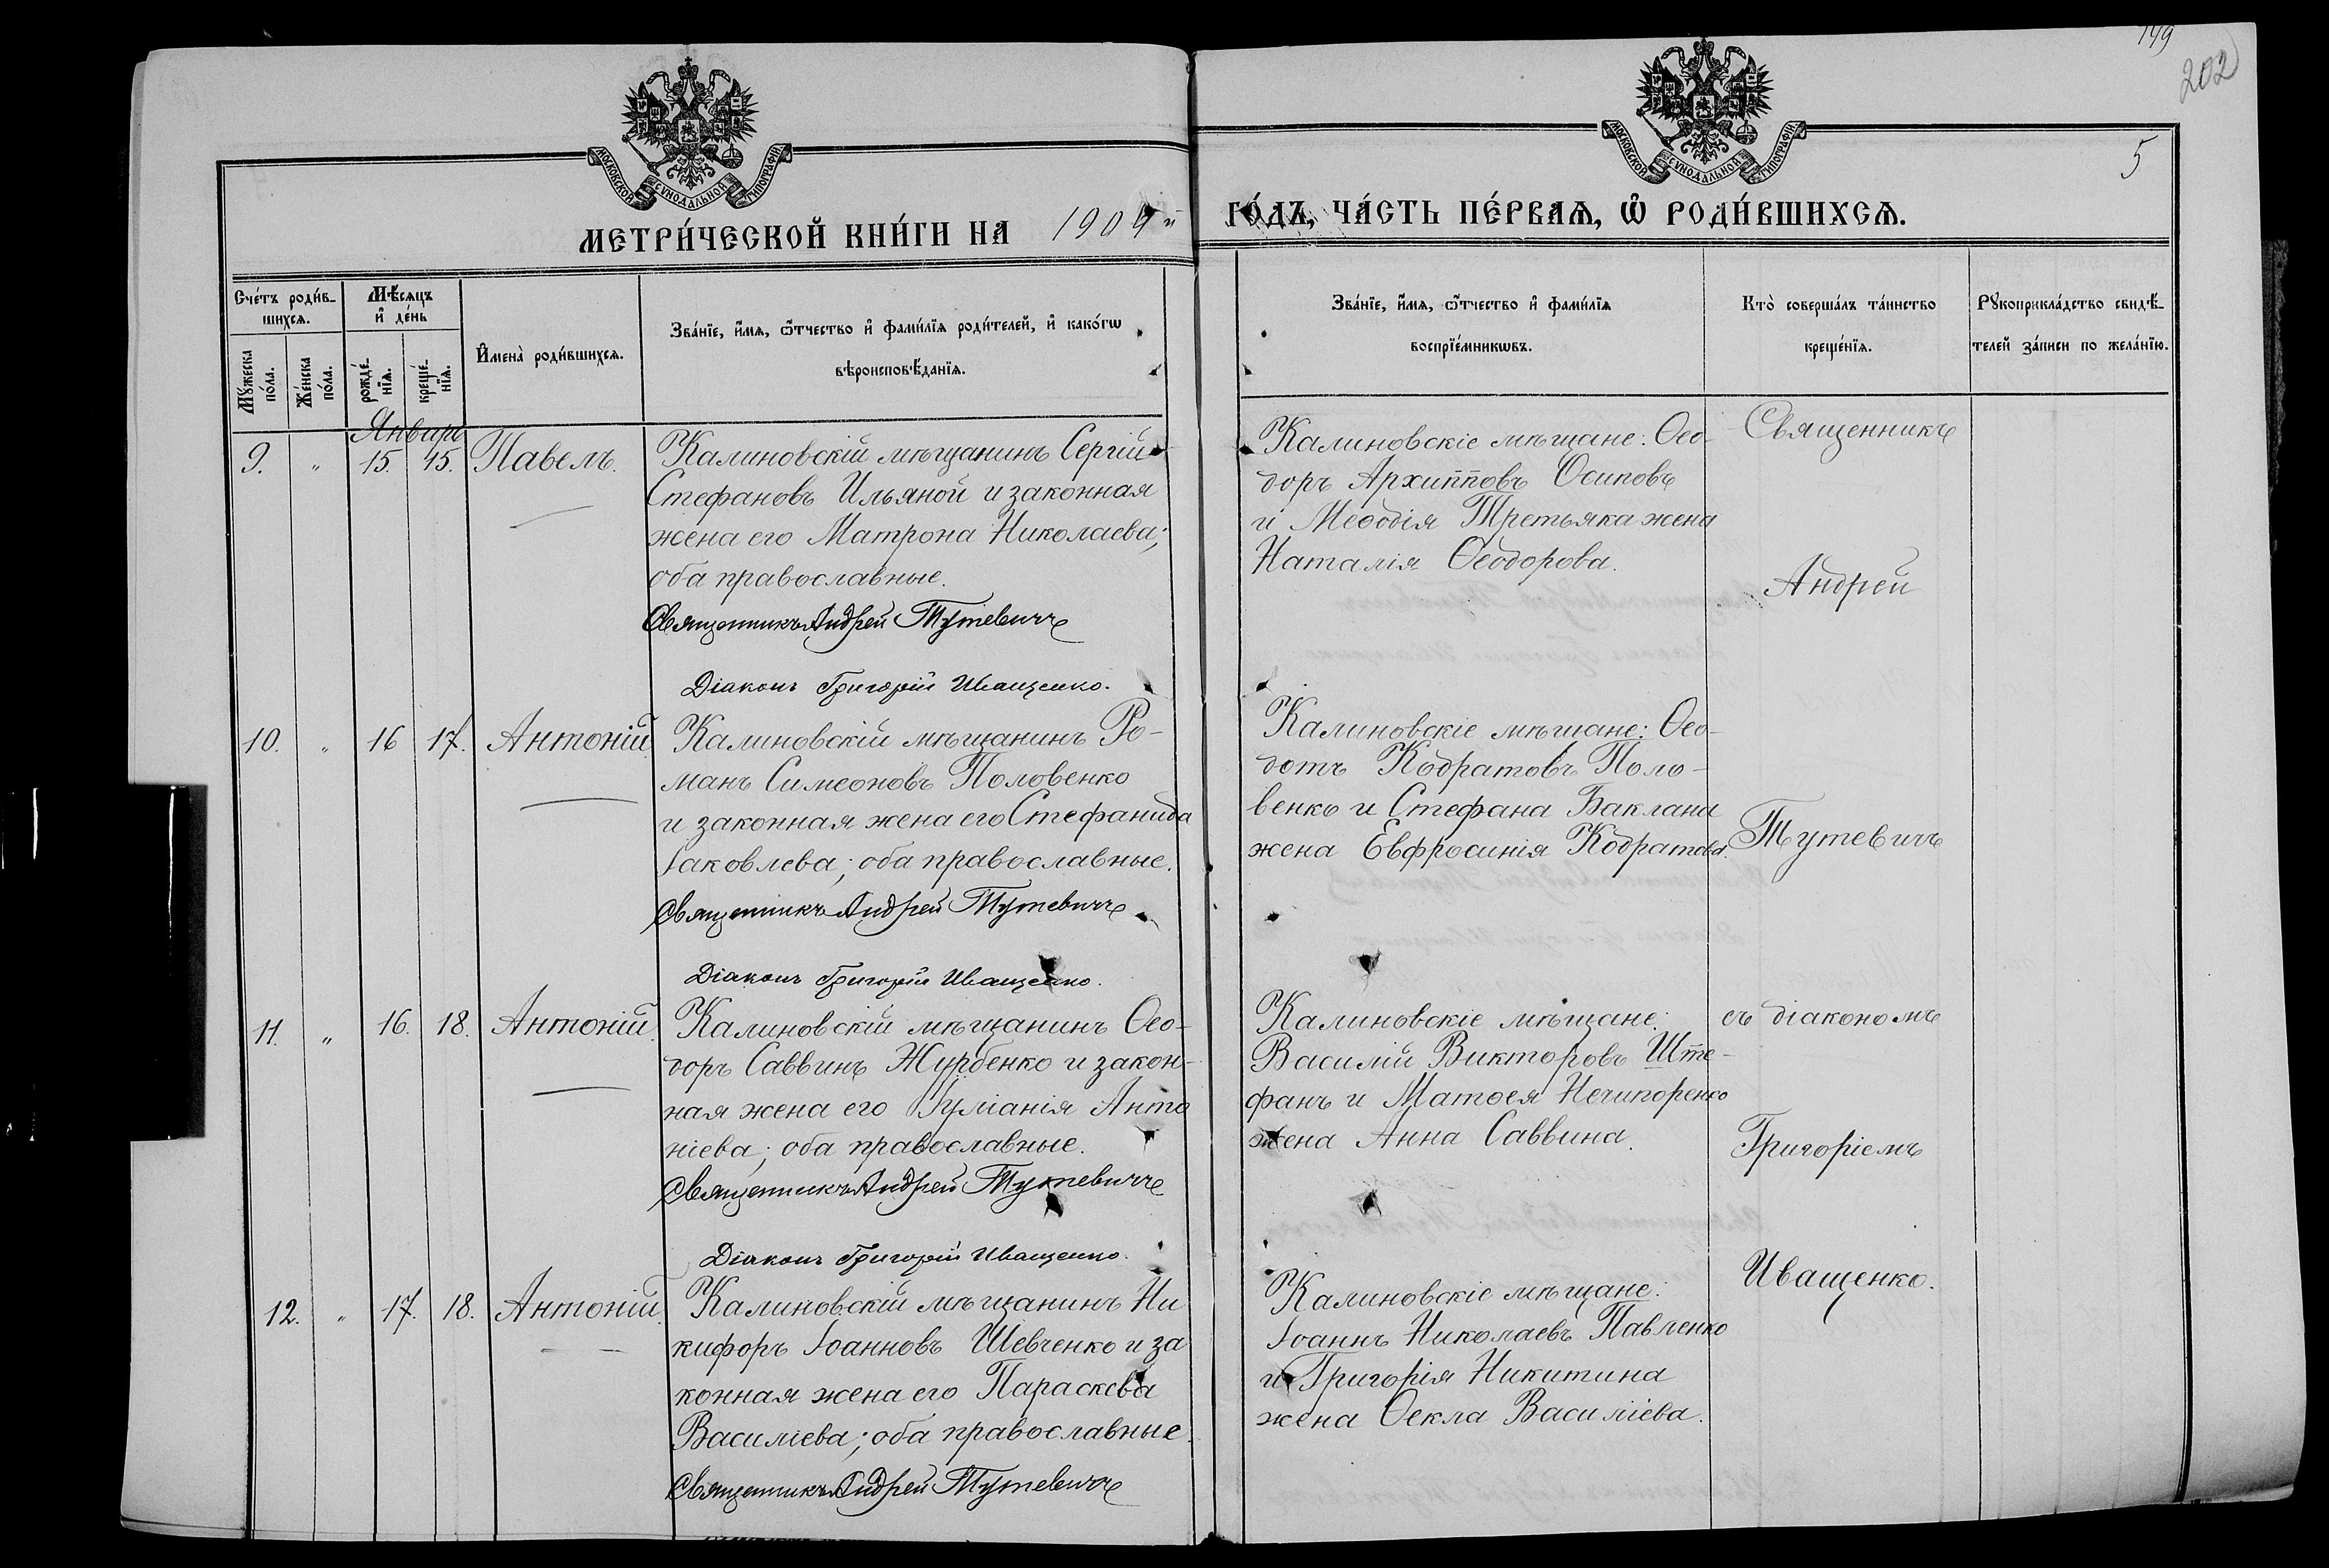 199
202
5
МОСКОВСКОЙ СѴНОДАЛЬНОЙ ТИПОГРАФІИ
МОСКОВСКОЙ СѴНОДАЛЬНОЙ ТИПОГРАФІИ
МЕТРИ́ЧЕСКОЙ КНИ́ГИ НА 1909й
ГО́ДЪ, ЧА́СТЬ ПЕ́РВАѦ, Ѽ РОДИ́ВШИХСѦ.
Сче́тъ роди́в-
шихсѧ.
Мꙋ́жеска
по́ла.
Же́нска
по́ла.
Мѣ́сѧцъ
и҆ де́нь
рожде́-
нїѧ.
креще́-
нїѧ.
И҆мена̀ роди́вшихсѧ.
Зва́нїе, и҆́мѧ, ѻ҆́тчество и҆ фами́лїѧ роди́телей, и҆ како́гѡ
вѣроисповѣ́данїѧ.
Зва́нїе, и҆́мѧ, ѻ҆́тчество и҆ фами́лїѧ
воспрїе́мникѡвъ.
Кто̀ соверша́лъ та́инство
креще́нїѧ.
Рꙋкоприкла́дство свидѣ́-
телей за́писи по жела́нїю.
Январь
9. " 15. 15. Павелъ.
Калиновскій мѣщанинъ Сергій
Стефановъ Ильяной и законная
жена его Матрона Николаева;
оба православные.
Священникъ Андрей Тутевичъ
Діаконъ Григорій Иващенко.
Калиновскіе мѣщане: Ѳео-
доръ Архипповъ Осиповъ
и Меѳодія Третьяка жена
Наталія Ѳеодорова.
Священникъ
Андрей
10. " 16 17. Антоній.
Калиновскій мѣщанинъ Ро-
манъ Симеоновъ Половенко
и законная жена его Стефанида
Іаковлева; оба православные.
Священникъ Андрей Тутевичъ
Діаконъ Григорій Иващенко.
Калиновскіе мѣщане: Ѳео-
дотъ Кодратовъ Поло-
венко и Стефана Баклана
жена Евфросинія Кодратова.
Тутевичъ
11. " 16. 18. Антоній.
Калиновскій мѣщанинъ Ѳео-
доръ Саввинъ Журбенко и закон-
ная жена его Іуліанія Анто
ніева; оба православные.
Священникъ Андрей Тутевичъ
Діаконъ Григорій Иващенко.
Калиновскіе мѣщане:
Василій Викторовъ Ште-
фанъ и Матѳея Нечипоренко
жена Анна Саввина.
съ діакономъ
Григоріемъ
12. " 17. 18. Антоній.
Калиновскій мѣщанинъ Ни
кифоръ Іоанновъ Шевченко и за
конная жена его Параскева
Василіева; оба православные.
Священникъ Андрей Тутевичъ
Калиновскіе мѣщане:
Іоаннъ Николаевъ Павленко
и Григорія Никитина
жена Ѳекла Василіева.
Иващенко.